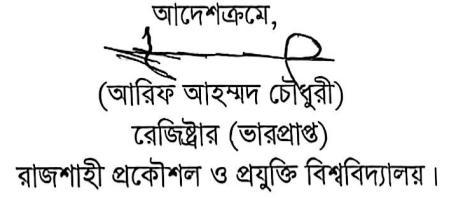 আদেশক্রমে,
(আরিফ আহম্মদ চৌধুরী)
রেজিষ্ট্রার (ভারপ্রাপ্ত)
রাজশাহী প্রকৌশল ও প্রযুক্তি বিশ্ববিদ্যালয়।